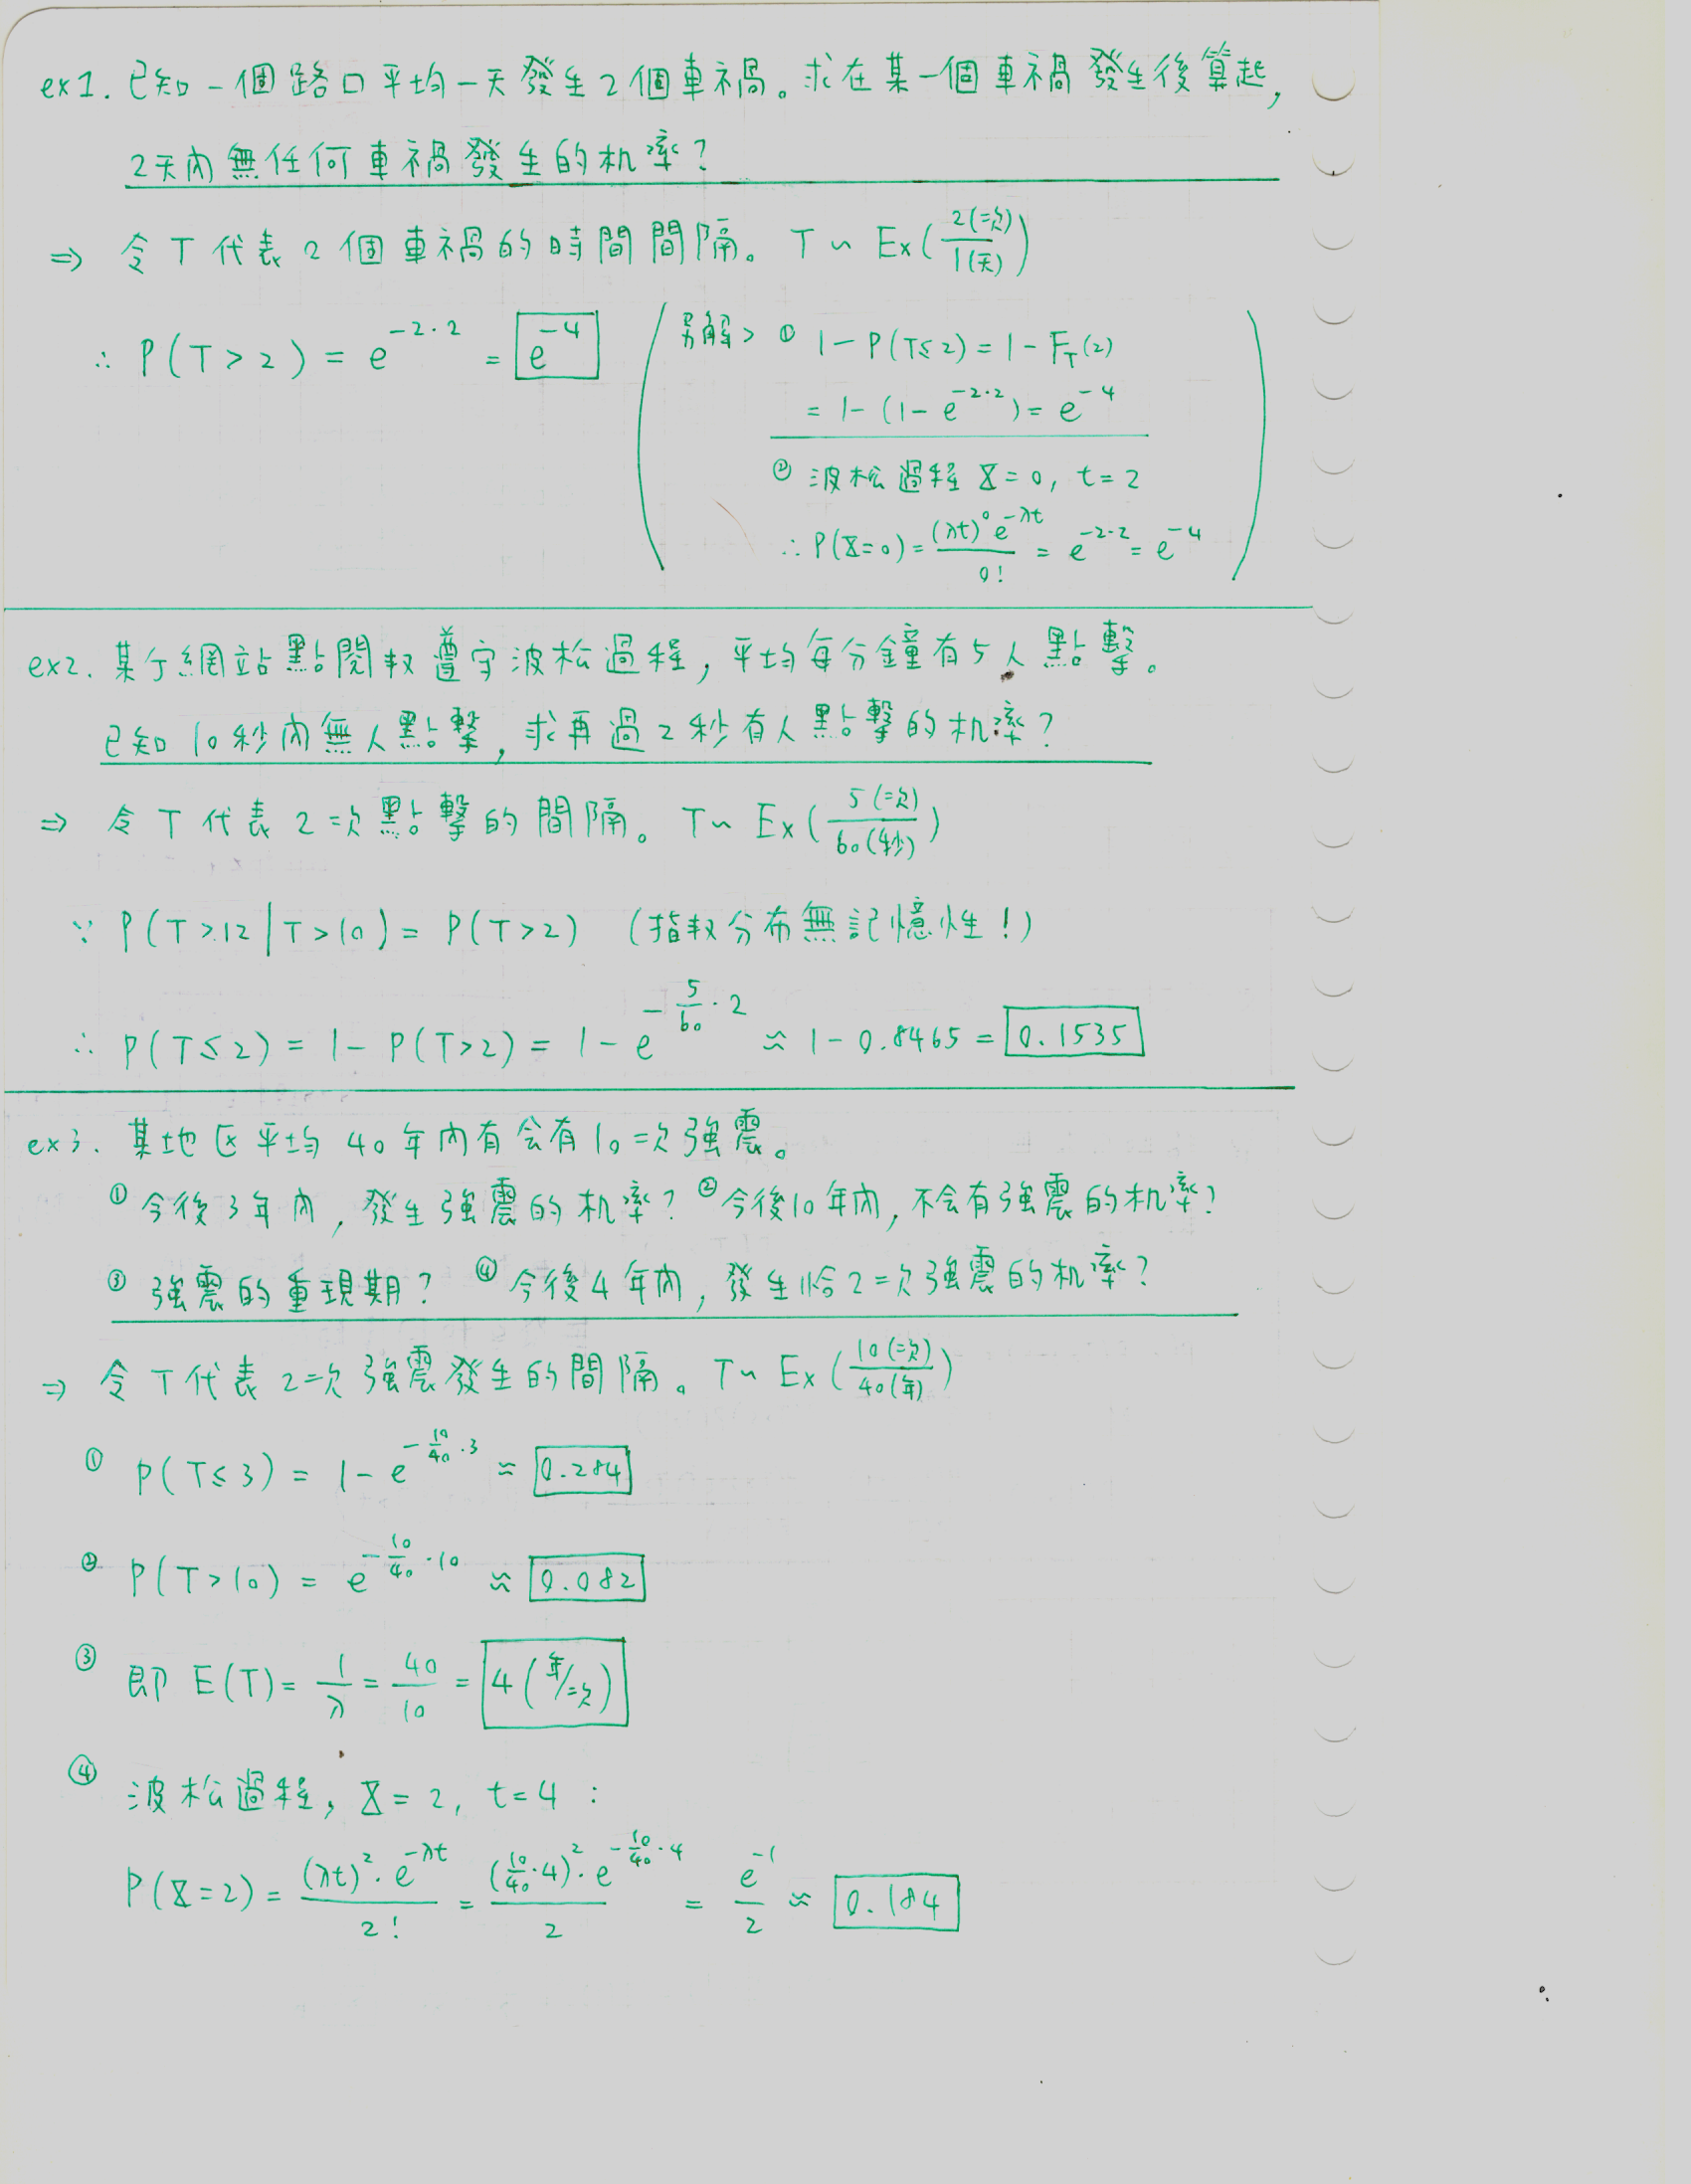 ex1. 已知一個路口平均一天發生2個車禍。求在某一個車禍發生後算起,
2天內無任何車禍發生的机率?
⇒ 令T代表2個車禍的時間間隔。 T ~ Ex(2(次)/1(天))
∴ P(T > 2) = e^{-2·2} = e^{-4}
(另解> ① 1 - P(T≤2) = 1 - F_T(2)
= 1 - (1 - e^{-2·2}) = e^{-4}
② 波松過程 X = 0, t = 2
∴ P(X=0) = (λt)^0 e^{-λt} / 0! = e^{-2·2} = e^{-4})
ex2. 某ㄎ網站點閱数遵守波松過程, 平均每分鐘有5人點擊。
已知10秒內無人點擊, 求再過2秒有人點擊的机率?
⇒ 令T代表2次點擊的間隔。 T ~ Ex(5(次)/60(秒))
∵ P(T > 12 | T > 10) = P(T > 2) (指数分布無記憶性!)
∴ P(T ≤ 2) = 1 - P(T > 2) = 1 - e^{-5/60·2} ≈ 1 - 0.8465 = 0.1535
ex3. 某地区平均40年內有会有10次強震。
① 今後3年內, 發生強震的机率? ② 今後10年內, 不会有強震的机率?
③ 強震的重現期? ④ 今後4年內, 發生恰2次強震的机率?
⇒ 令T代表2次強震發生的間隔。 T ~ Ex(10(次)/40(年))
① P(T ≤ 3) = 1 - e^{-10/40·3} ≈ 0.284
② P(T > 10) = e^{-10/40·10} ≈ 0.082
③ 即 E(T) = 1/λ = 40/10 = 4(年/次)
④ 波松過程, X = 2, t = 4 :
P(X=2) = (λt)^2·e^{-λt} / 2! = (10/40·4)^2·e^{-10/40·4} / 2 = e^{-1}/2 ≈ 0.184